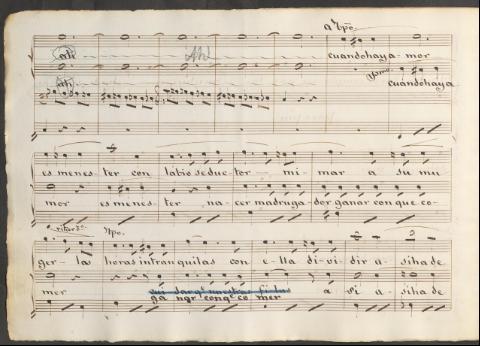 a Tpo.
ah Ah! cuando haya amor
ah! cuando haya
es menester con labio seductor mimar a su mu
mor es menester nacer madrugador ganar con que co-
ritard. Tpo.
ger- las horas intranquilas con ella dividir a- si ha de
mer a si a- si ha de
co mer